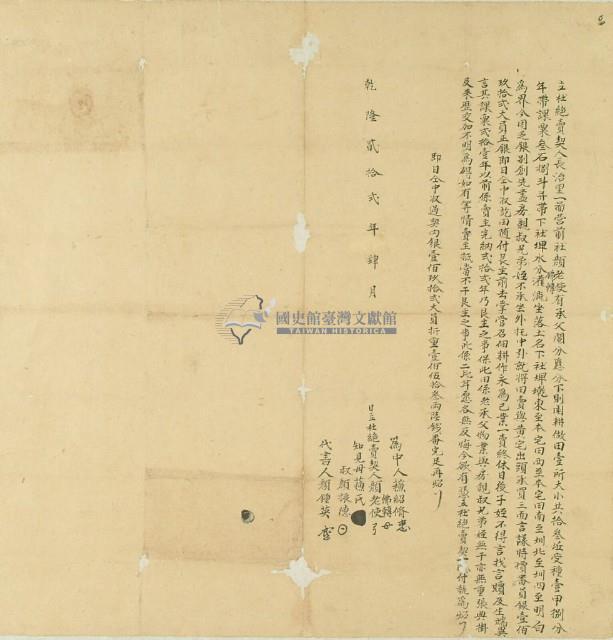 立杜絕賣契人長治里一圖營前社顏老使佛賴有承父鬮分應分下則南耕做田壹所大小共拾叁坵受種壹甲捌分
年帶課粟叁石捌斗并帶下社埤水分灌溉坐落土名下社埤墘東至本宅田西至本宅田南至圳北至圳四至明白
為界今因乏銀別創先盡房親叔兄弟姪不承坐外托中引就將田賣與黃宅出頭承買三面言議時價番員銀壹佰
玖拾弍大員正銀即日仝中收訖田隨付銀主前去掌管召佃耕作永為己業一賣終休日後子姪不得言找言贖及生端異
言其課粟弍拾壹年以前係賣主完納弍拾弍年乃銀主之事保此田係老承父物業與房親叔兄弟姪無干亦無重張典掛
及來歷交加不明為碍如有等情賣主抵當不干銀主之事此係二比甘愿各無反悔今欲有憑立杜絕賣契一紙付執為炤
即日仝中收過契內銀壹佰玖拾弍大員折重壹佰伍拾叁兩陸錢番完足再炤
乾隆貳拾弍年肆月
為中人蘇紹脩
日立杜絕賣契人顏老使佛賴
知見母蘇氏
叔顏振德
代書人顏鍾英
國史館臺灣文獻館
TAIWAN HISTORICA